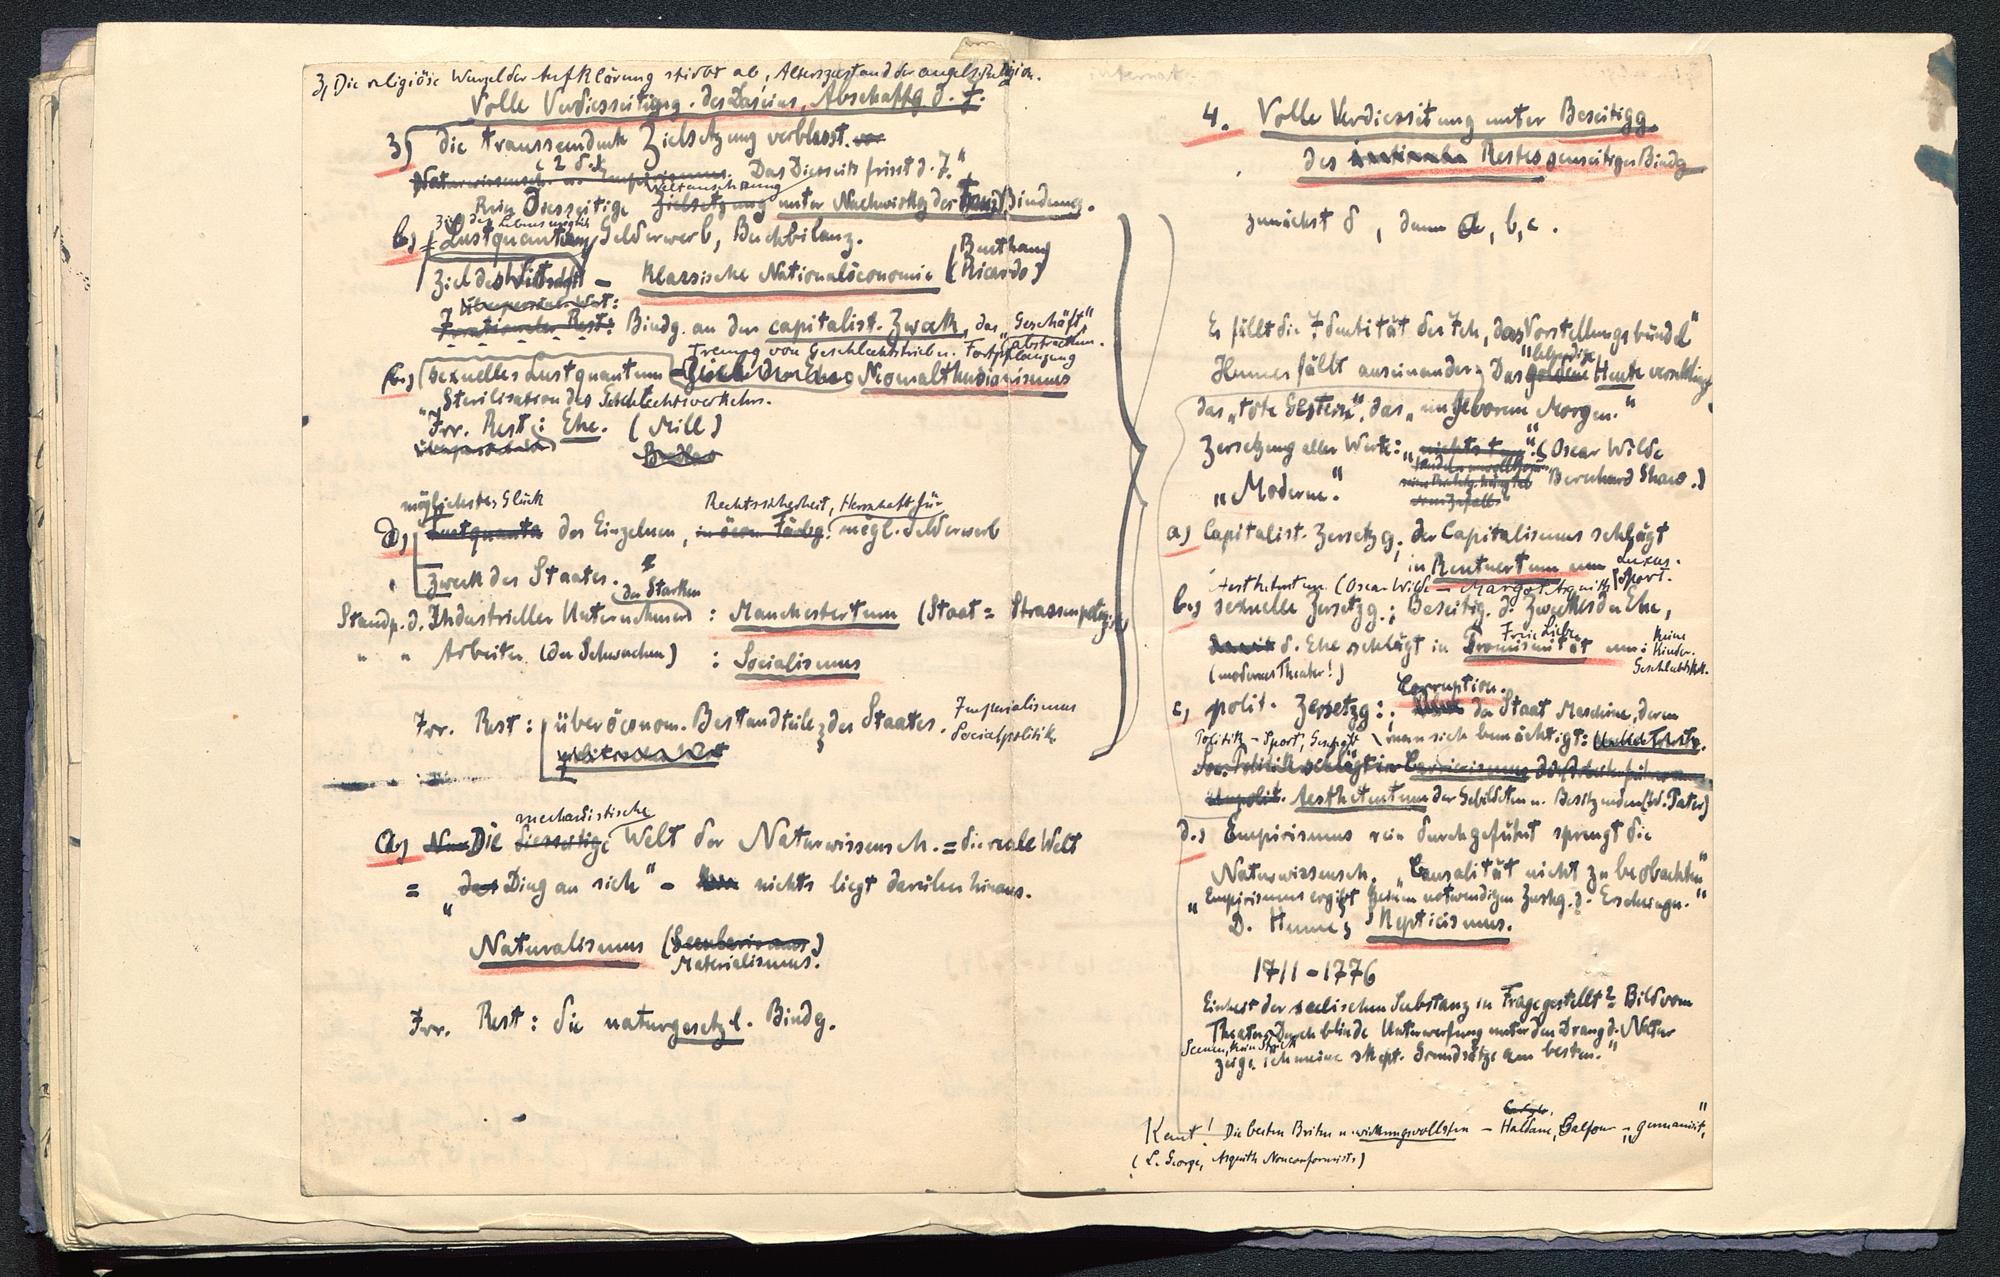 3, Die religiöse Wurzel der Aufklärung stirbt ab, Alterszustand der angels. Religion.
Volle Verdiesseitigg. des Daseins, Abschaffg d. J.
3) die transzendente Zielsetzung verblasst.
Das Diesseits frisst d. J."
Rein Diesseitige Weltanschauung unter Nachwirkg der Bindung.
b) Lustquantum, Gelderwerb, Buchbilanz.
Ziel des – Klassische Nationalöconomie (Bentham
Ricardo)
Bindg. an den capitalist. Zweck, das "Geschäft"
Trennng von Geschlechtstrieb u. Fortpflanzung
c.) sexuelles Lustquantum Neomalthusianismus
"Sterilisation des Geschlechtsverkehrs.
Irr. Rest: Ehe. (Mill)
möglichstes Glück Rechtssicherheit, Herrschaft für
d) des Einzelnen, mögl. Gelderwerb
Zweck des Staates.
der Starken
Standp. d. Industrieller Unternehmers : Manchestertum (Staat = Strassenpolizei)
" " Arbeiter (der Schwachen) : Socialismus
Irr. Rest : überöconom. Bestandteile des Staates. Imperialismus
Socialpolitik
mechanistische
a) Die Welt der Naturwissensch. = die reale Welt
= "Ding an sich" – nichts liegt darüber hinaus.
Naturalismus
Materialismus.
Irr. Rest : die naturgesetzl. Bindg.
4. Volle Verdiesseitung unter Beseitigg.
des Restes jenseitiger Bindg
zunächst d, dann a, b, c.
Es fällt die Identität des Ich, das "Vorstellungsbündel"
Humes fällt auseinander; Das "lebendige Heute verschlingt
das "tote Gestern", das "ungeborene Morgen."
Zersetzung aller Werte: (Oscar Wilde
"Moderne." Bernhard Shaw.)
a) Capitalist. Zersetzg.; der Capitalismus schlägt
in Rentnertum um Luxus.
Aesthetentum (Oscar Wilde – Margot Asquith) Sport.
b.) sexuelle Zersetzg.; Beseitig. d. Zweckes der Ehe,
d. Ehe schlägt in Promiscuität um: Keine
Freie Liebe Kinder.
(modernes Theater!)
Corruption.
c, polit. Zersetzg: der Staat Maschine, deren
Politik – Sport, Geschäft man sich bemächtigt:
Aesthetentum der Gebildeten u. Besitzenden (W. Pater)
d.) Empirismus rein durchgeführt sprengt die
Naturwissensch. "Causalität nicht zu beobachten"
"Empirismus ergibt keinen notwendigen Zushg. d. Erscheingn."
D. Hume's Skepticismus.
1711–1776
Einheit der seelischen Substanz in Frage gestellt: Bild vom
Theater. "Durch blinde Unterwerfung unter den Drang d. Natur
zeige ich meine skept. Grundsätze am besten."
Kant! Die besten Briten u. wirkungsvollsten – Haldane, Balfour – "germanisit,"
(L. George, Asquith Nonconformists)